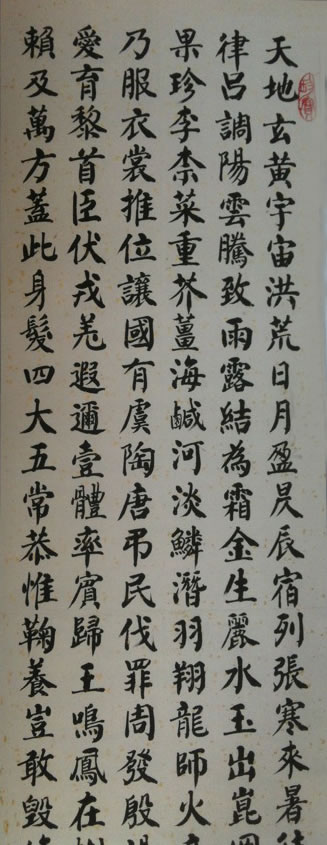 天地玄黃宇宙洪荒日月盈昃辰宿列張寒來暑
律呂調陽雲騰致雨露結為霜金生麗水玉出崑
果珍李柰菜重芥薑海鹹河淡鱗潛羽翔龍師火
乃服衣裳推位讓國有虞陶唐弔民伐罪周發殷
愛育黎首臣伏戎羌遐邇壹體率賓歸王鳴鳳在
賴及萬方蓋此身髮四大五常恭惟鞠養豈敢毀